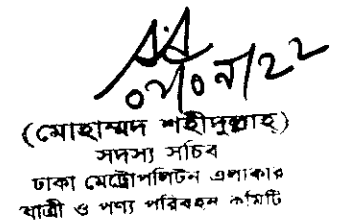 ০৭/০৭/২২
(মোহাম্মদ শহীদুল্লাহ)
সদস্য সচিব
ঢাকা মেট্রোপলিটন এলাকার
যাত্রী ও পণ্য পরিবহন কমিটি